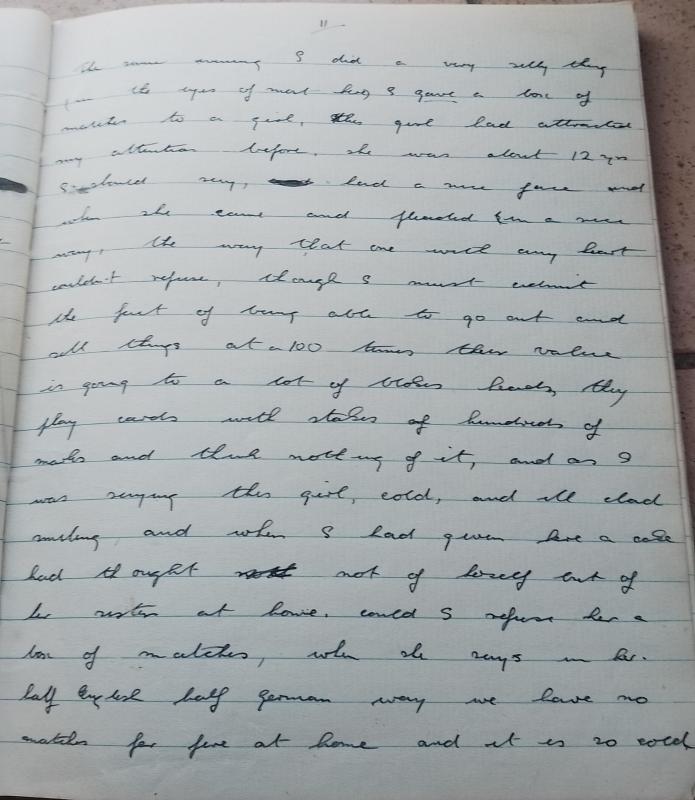 11
The same evening I did a very silly thing
(in the eyes of most here) I gave a box of
matches to a girl, this girl had attracted
my attention before. she was about 12 yrs
I should say, had a nice face and
when she came and pleaded in a nice
way, the way that one with any heart
couldn't refuse, though I must admit
the fact of being able to go out and
sell things at a 100 times their value
is going to a lot of blokes heads, they
play cards with stakes of hundreds of
marks and think nothing of it, and as I
was saying this girl, cold, and ill clad
smiling and when I had given here a cake
had thought not of herself but of
her sister at home. could I refuse her a
box of matches, when she says in her.
half English half German way we have no
matches for fire at home and it is so cold